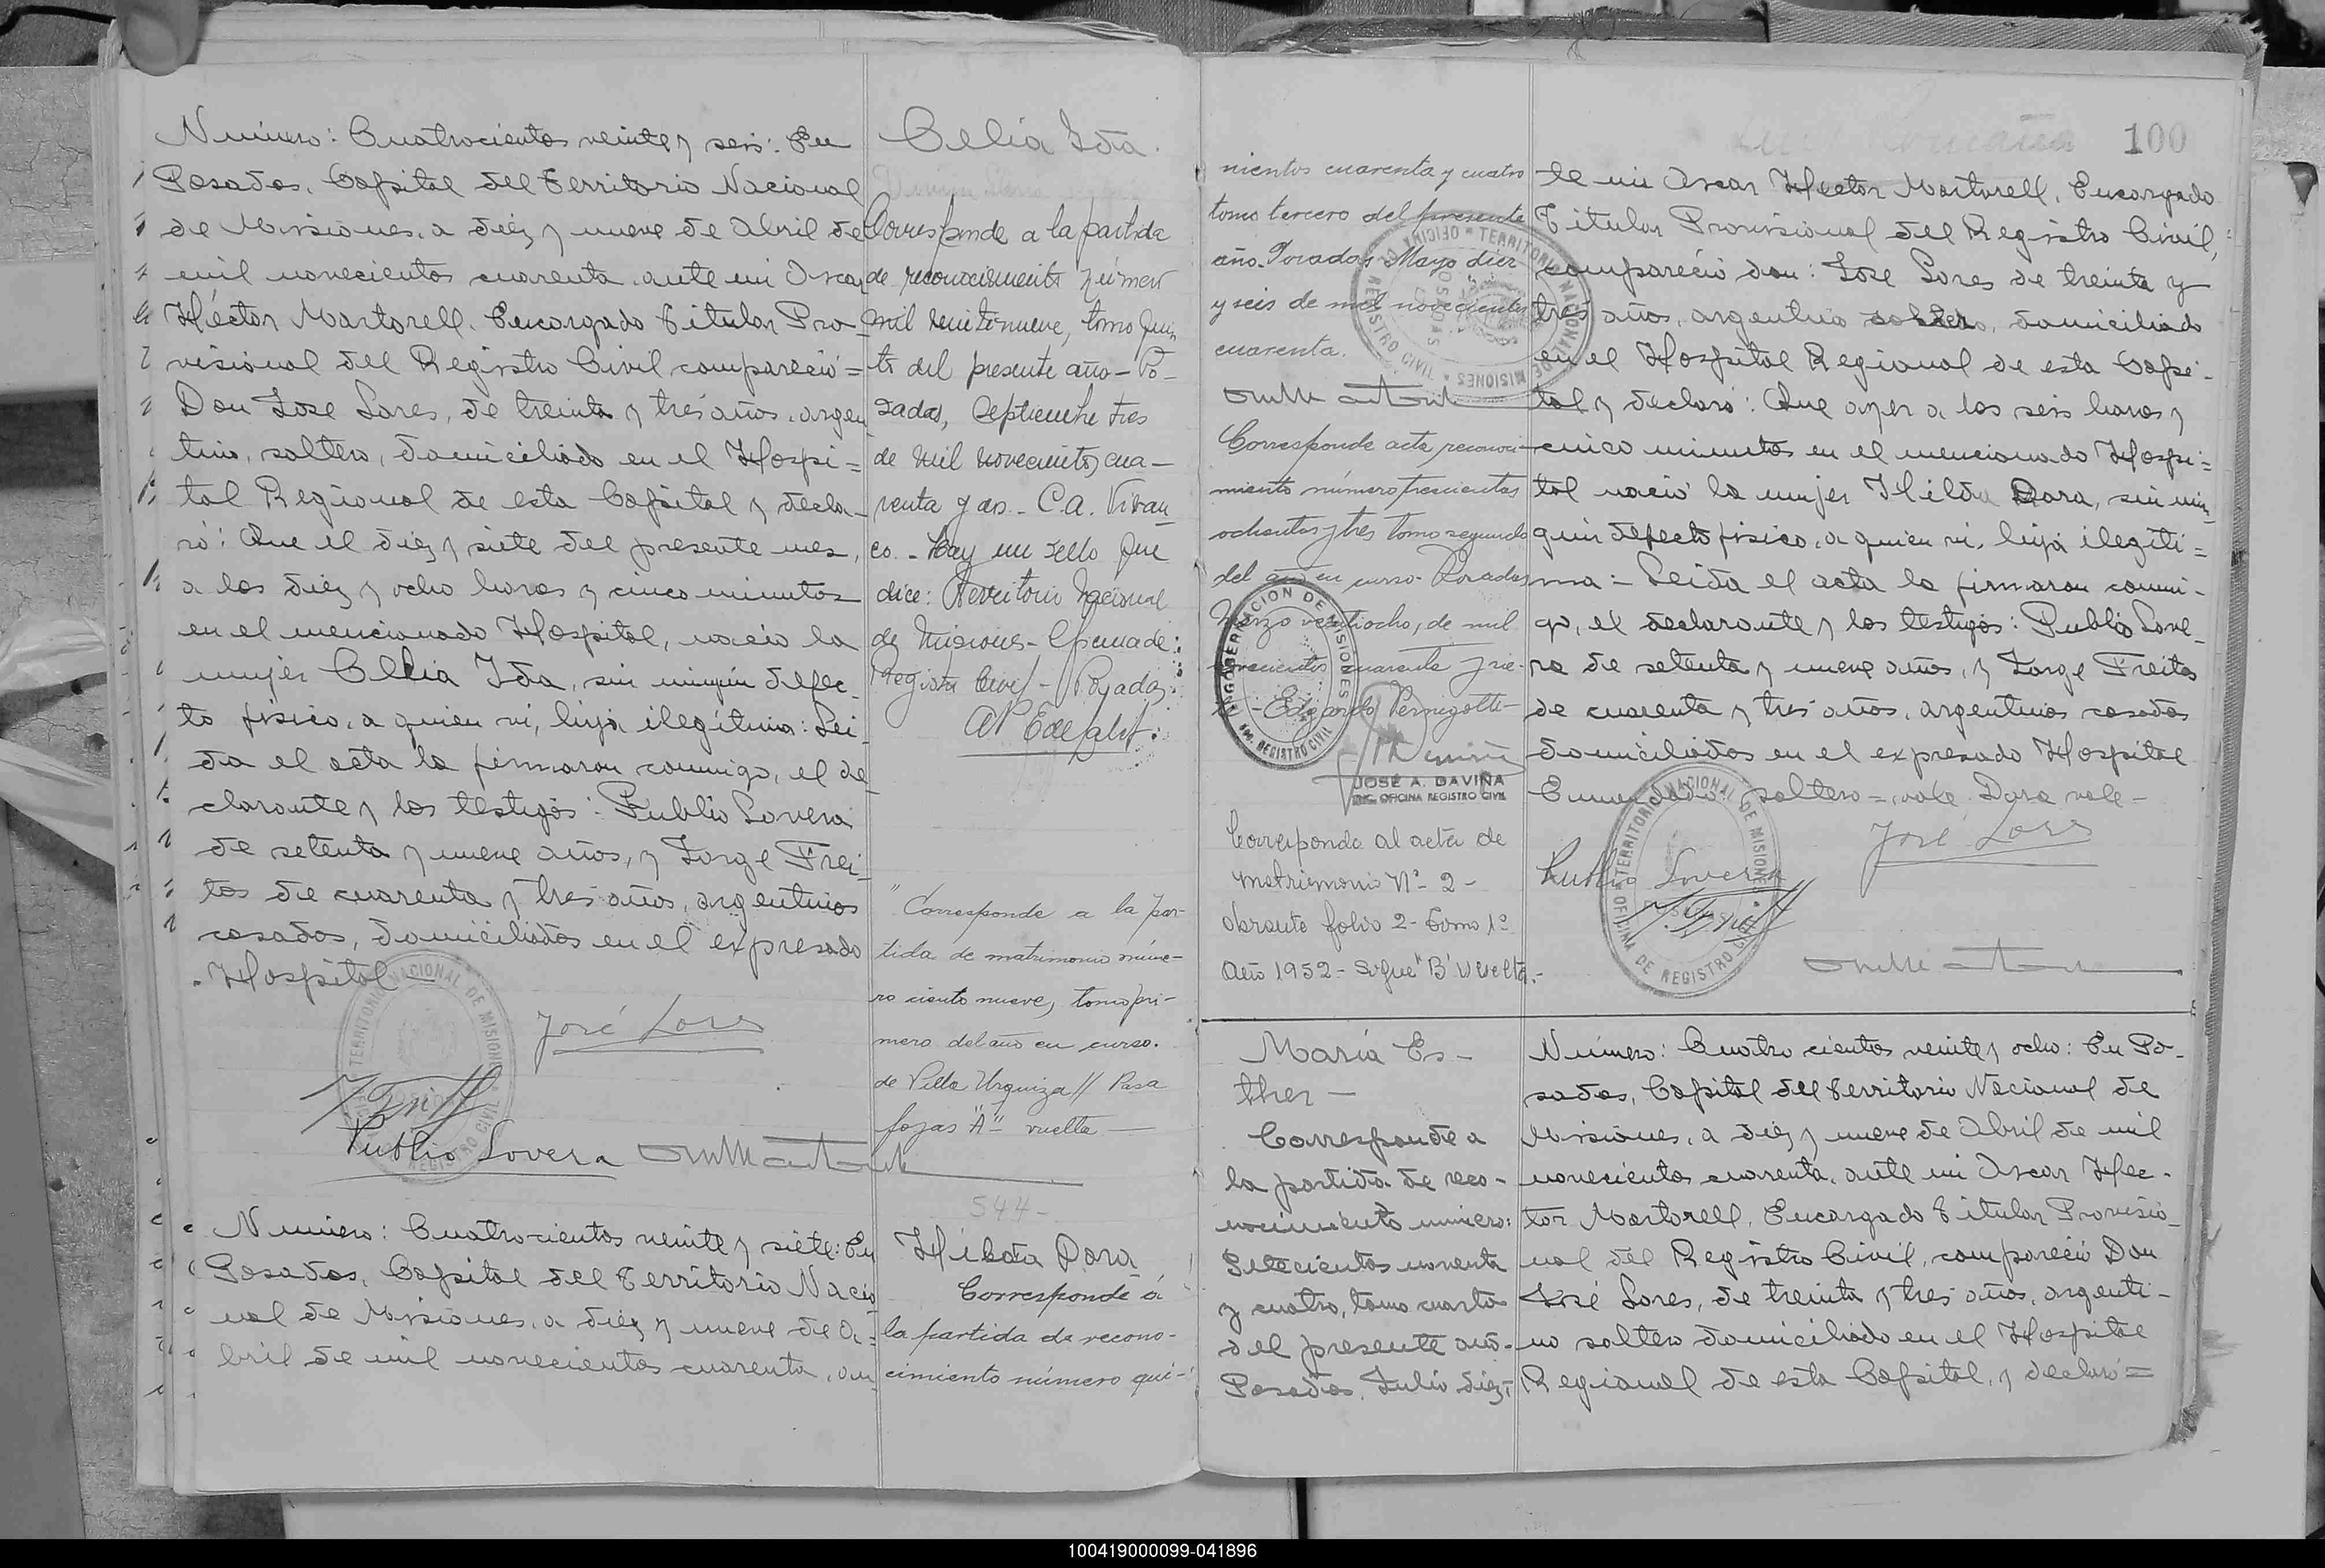 Número: Cuatrocientos veinte y seis: En
Posadas, Capital del Territorio Nacional
de Misiones, a diez y nueve de Abril de
mil novecientos cuarenta, ante mi Oscar
Héctor Martorell, Encargado Titular Pro-
visional del Registro Civil compareció=
Don Jose Lares, de treinta y tres años, argen
tino, soltero, domiciliado en el Hospi=
tal Regional de esta Capital y decla-
ró: Que el diez y siete del presente mes,
a las diez y ocho horas y cinco minutos
en el mencionado Hospital, nació la
mujer Celia Ida, sin ningún defec-
to físico, a quien vi, hija ilegítima: Lei-
da el acta la firmaron conmigo, el de
clarante y los testigos: Publio Lovera
de setenta y nueve años, y Jorge Frei-
tas de cuarenta y tres años, argentinos
casados, domiciliados en el expresado
Hospital
José Lares
Publio Lovera
Celia Ida.
Corresponde a la partida
de reconocimiento número
mil veintinueve, tomo quin
to del presente año - Po-
sadas, Septiembre tres
de mil novecientos cua-
renta y dos - C.A. Vivan-
co. - Hay un sello que
dice: Territorio Nacional
de Misiones - Oficina de:
Registro Civil - Posadas.
"Corresponde a la par-
tida de matrimonio núme-
ro ciento nueve, tomo pri-
mero del año en curso.
de Villa Urquiza // Pasa
fojas "A" vuelta
544-
Número: Cuatrocientos veinte y siete: En
Posadas, Capital del Territorio Nacio
nal de Misiones, a diez y nueve de A=
bril de mil novecientos cuarenta, an
Hilda Dora
Corresponde á
la partida de recono-
cimiento número qui-
nientos cuarenta y cuatro
tomo tercero del presente
año. Posadas Mayo diez
y seis de mil novecientos
cuarenta.
Corresponde acta reconoci-
miento número trescientos
ochenta y tres tomo segundo
del año en curso. Posadas
Marzo veintiocho, de mil
novecientos cuarenta y sie-
- Edgardo Pernigotti-
JOSÉ A. DAVIÑA
ENC. OFICINA REGISTRO CIVIL
Corresponde al acta de
matrimonio Nº 2 -
obrante folio 2- Tomo 1º
Año 1952 - Sigue "B" vuelta.-
100
te mi Oscar Hector Martorell, Encargado
Titular Provisional del Registro Civil,
compareció don: Jose Lares de treinta y
tres años, argentino soltero, domiciliado
en el Hospital Regional de esta Capi-
tal y declaró: Que ayer a las seis horas y
cinco minutos en el mencionado Hospi=
tal nació la mujer Hilda Dora, sin nin-
gun defecto fisico, a quien vi, hija ilegiti=
ma:- Leida el acta la firmaron conmi-
go, el declarante y los testigos: Publio Love-
ra de setenta y nueve años, y Jorge Freitas
de cuarenta y tres años, argentinos casados
domiciliados en el expresado Hospital
Enmendado: soltero = vale. Dora vale-
José Lares
Publio Lovera
TERRITORIO NACIONAL DE MISIONES
OFICINA DE REGISTRO CIVIL
María Es-
ther -
Corresponde a
la partida de reco-
nocimiento número:
Setecientos noventa
y cuatro, tomo cuarto
del presente año.
Posadas, Julio diez-
Número: Cuatro cientos veinte y ocho: En Po-
sadas, Capital del Territorio Nacional de
Misiones, a diez y nueve de Abril de mil
novecientos cuarenta, ante mi Oscar Hec-
tor Martorell, Encargado Titular Provisio-
nal del Registro Civil, compareció Don
José Lares, de treinta y tres años, argenti-
no soltero domiciliado en el Hospital
Regional de esta Capital, y declaró=
100419000099-041896